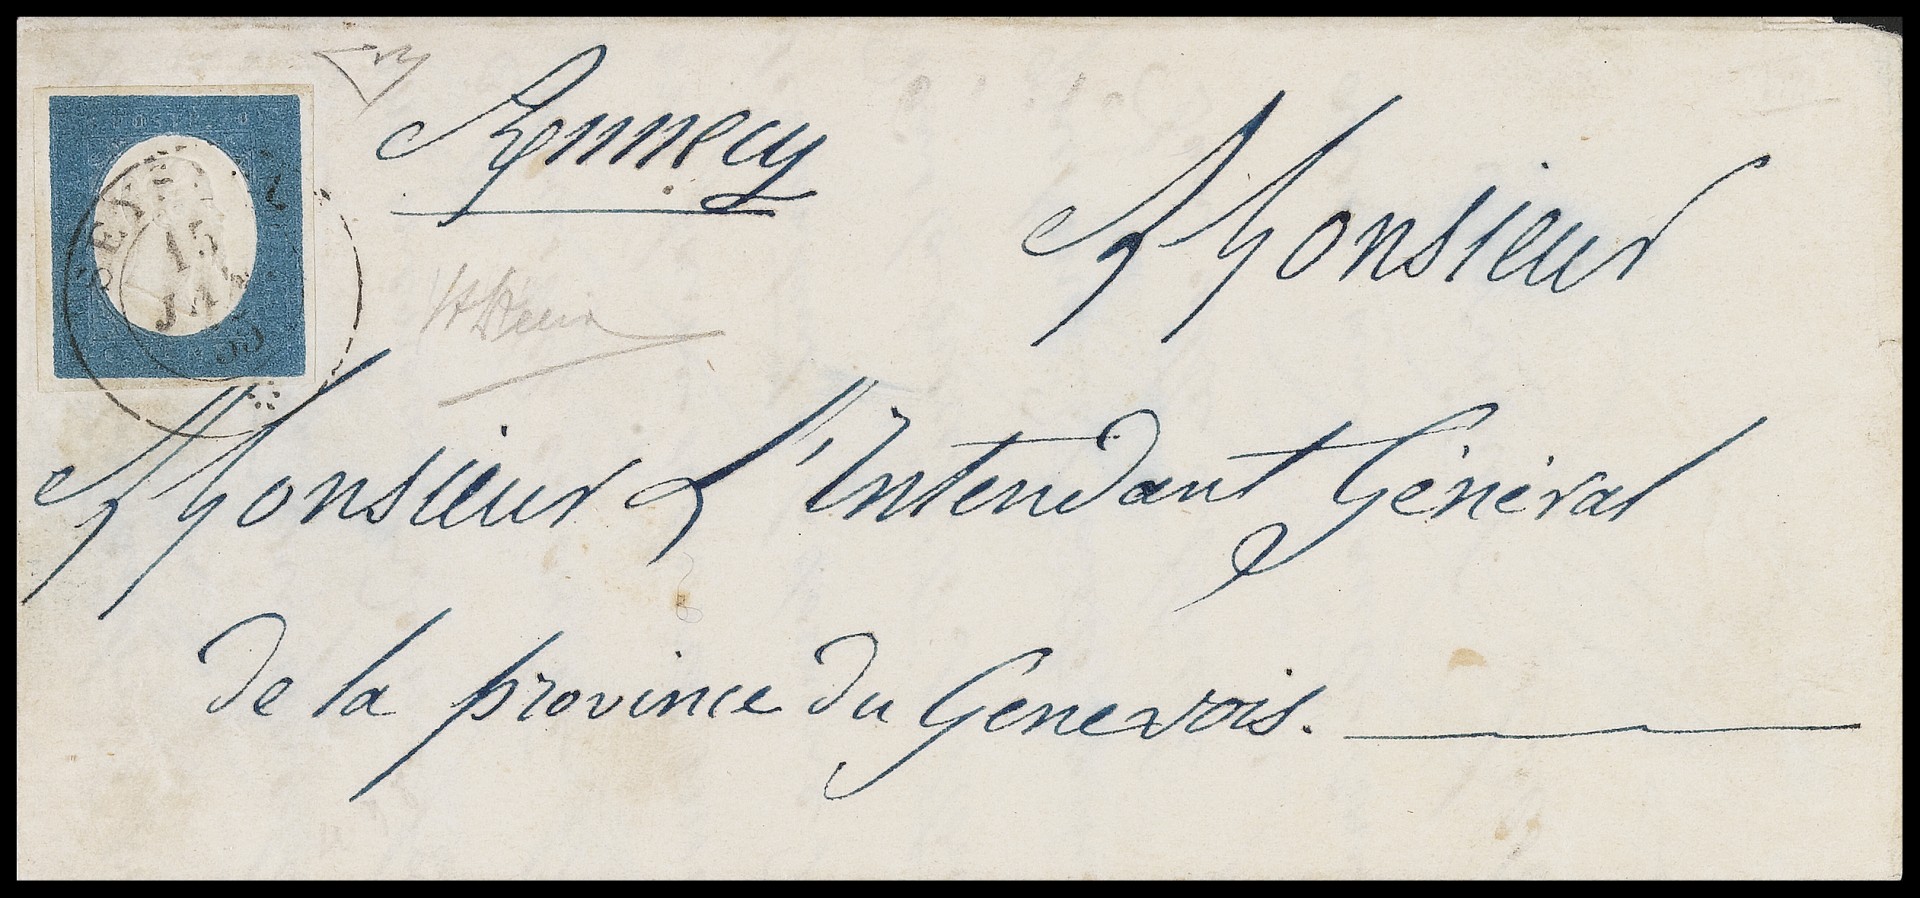 Annecy
Monsieur
Monsieur L'Intendant Général
de la province du Genevois.
15
55